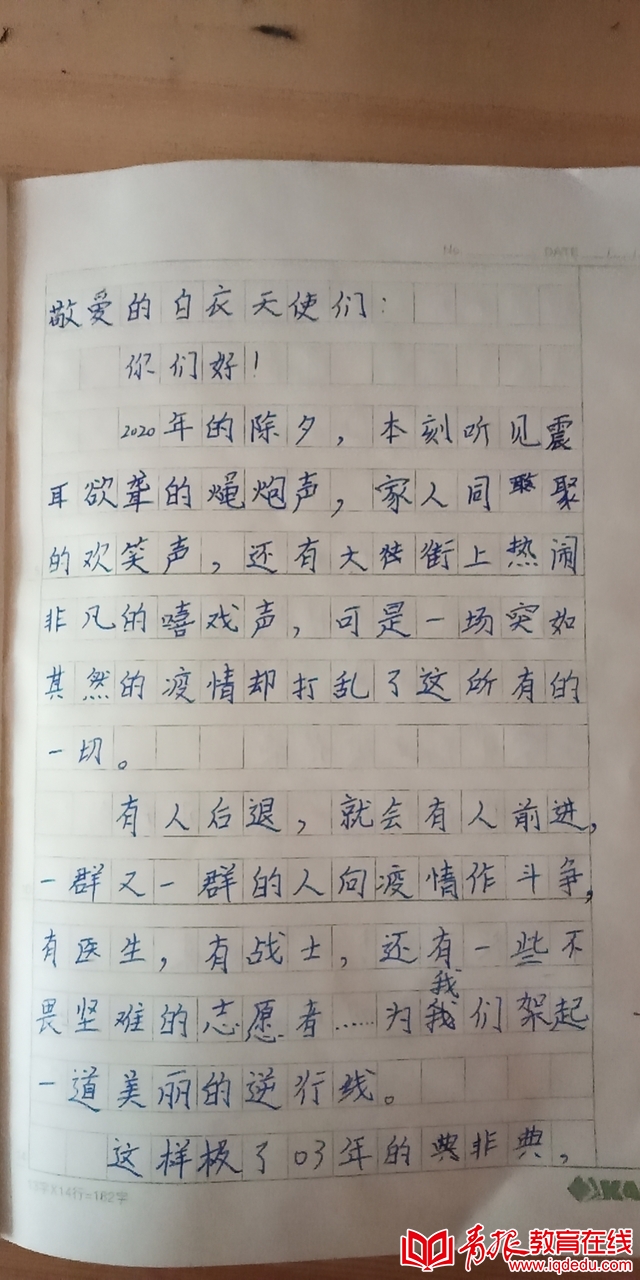 No. DATE
敬爱的白衣天使们：
你们好！
2020年的除夕，本刻听见震
耳欲聋的爆炮声，家人同聚
的欢笑声，还有大街上热闹
非凡的嘻戏声，可是一场突如
其然的疫情却打乱了这所有的
一切。
有人后退，就会有人前进，
一群又一群的人向疫情作斗争，
有医生，有战士，还有一些不
畏坚难的志愿者……为我们架起
一道美丽的逆行线。
这样极了03年的非典，
X14行=182字
青报教育在线
www.iqdedu.com